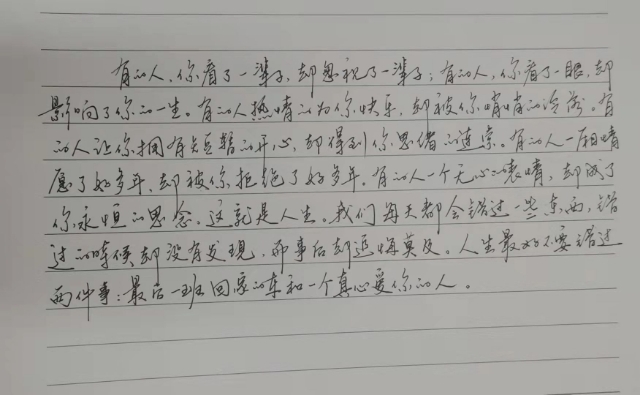 有的人,你看了一辈子,却忽视了一辈子;有的人,你看了一眼,却
影响了你的一生。有的人热情的为你快乐,却被你悄悄的冷落。有
的人让你拥有短暂的开心,却得到你思绪的连索。有的人一厢情
愿了好多年,却被你拒绝了好多年。有的人一个无心的表情,却成了
你永恒的思念。这就是人生。我们每天都会错过一些东西,错
过的时候却没有发现,而事后却追悔莫及。人生最好不要错过
两件事:最后一班回家的车和一个真心爱你的人。